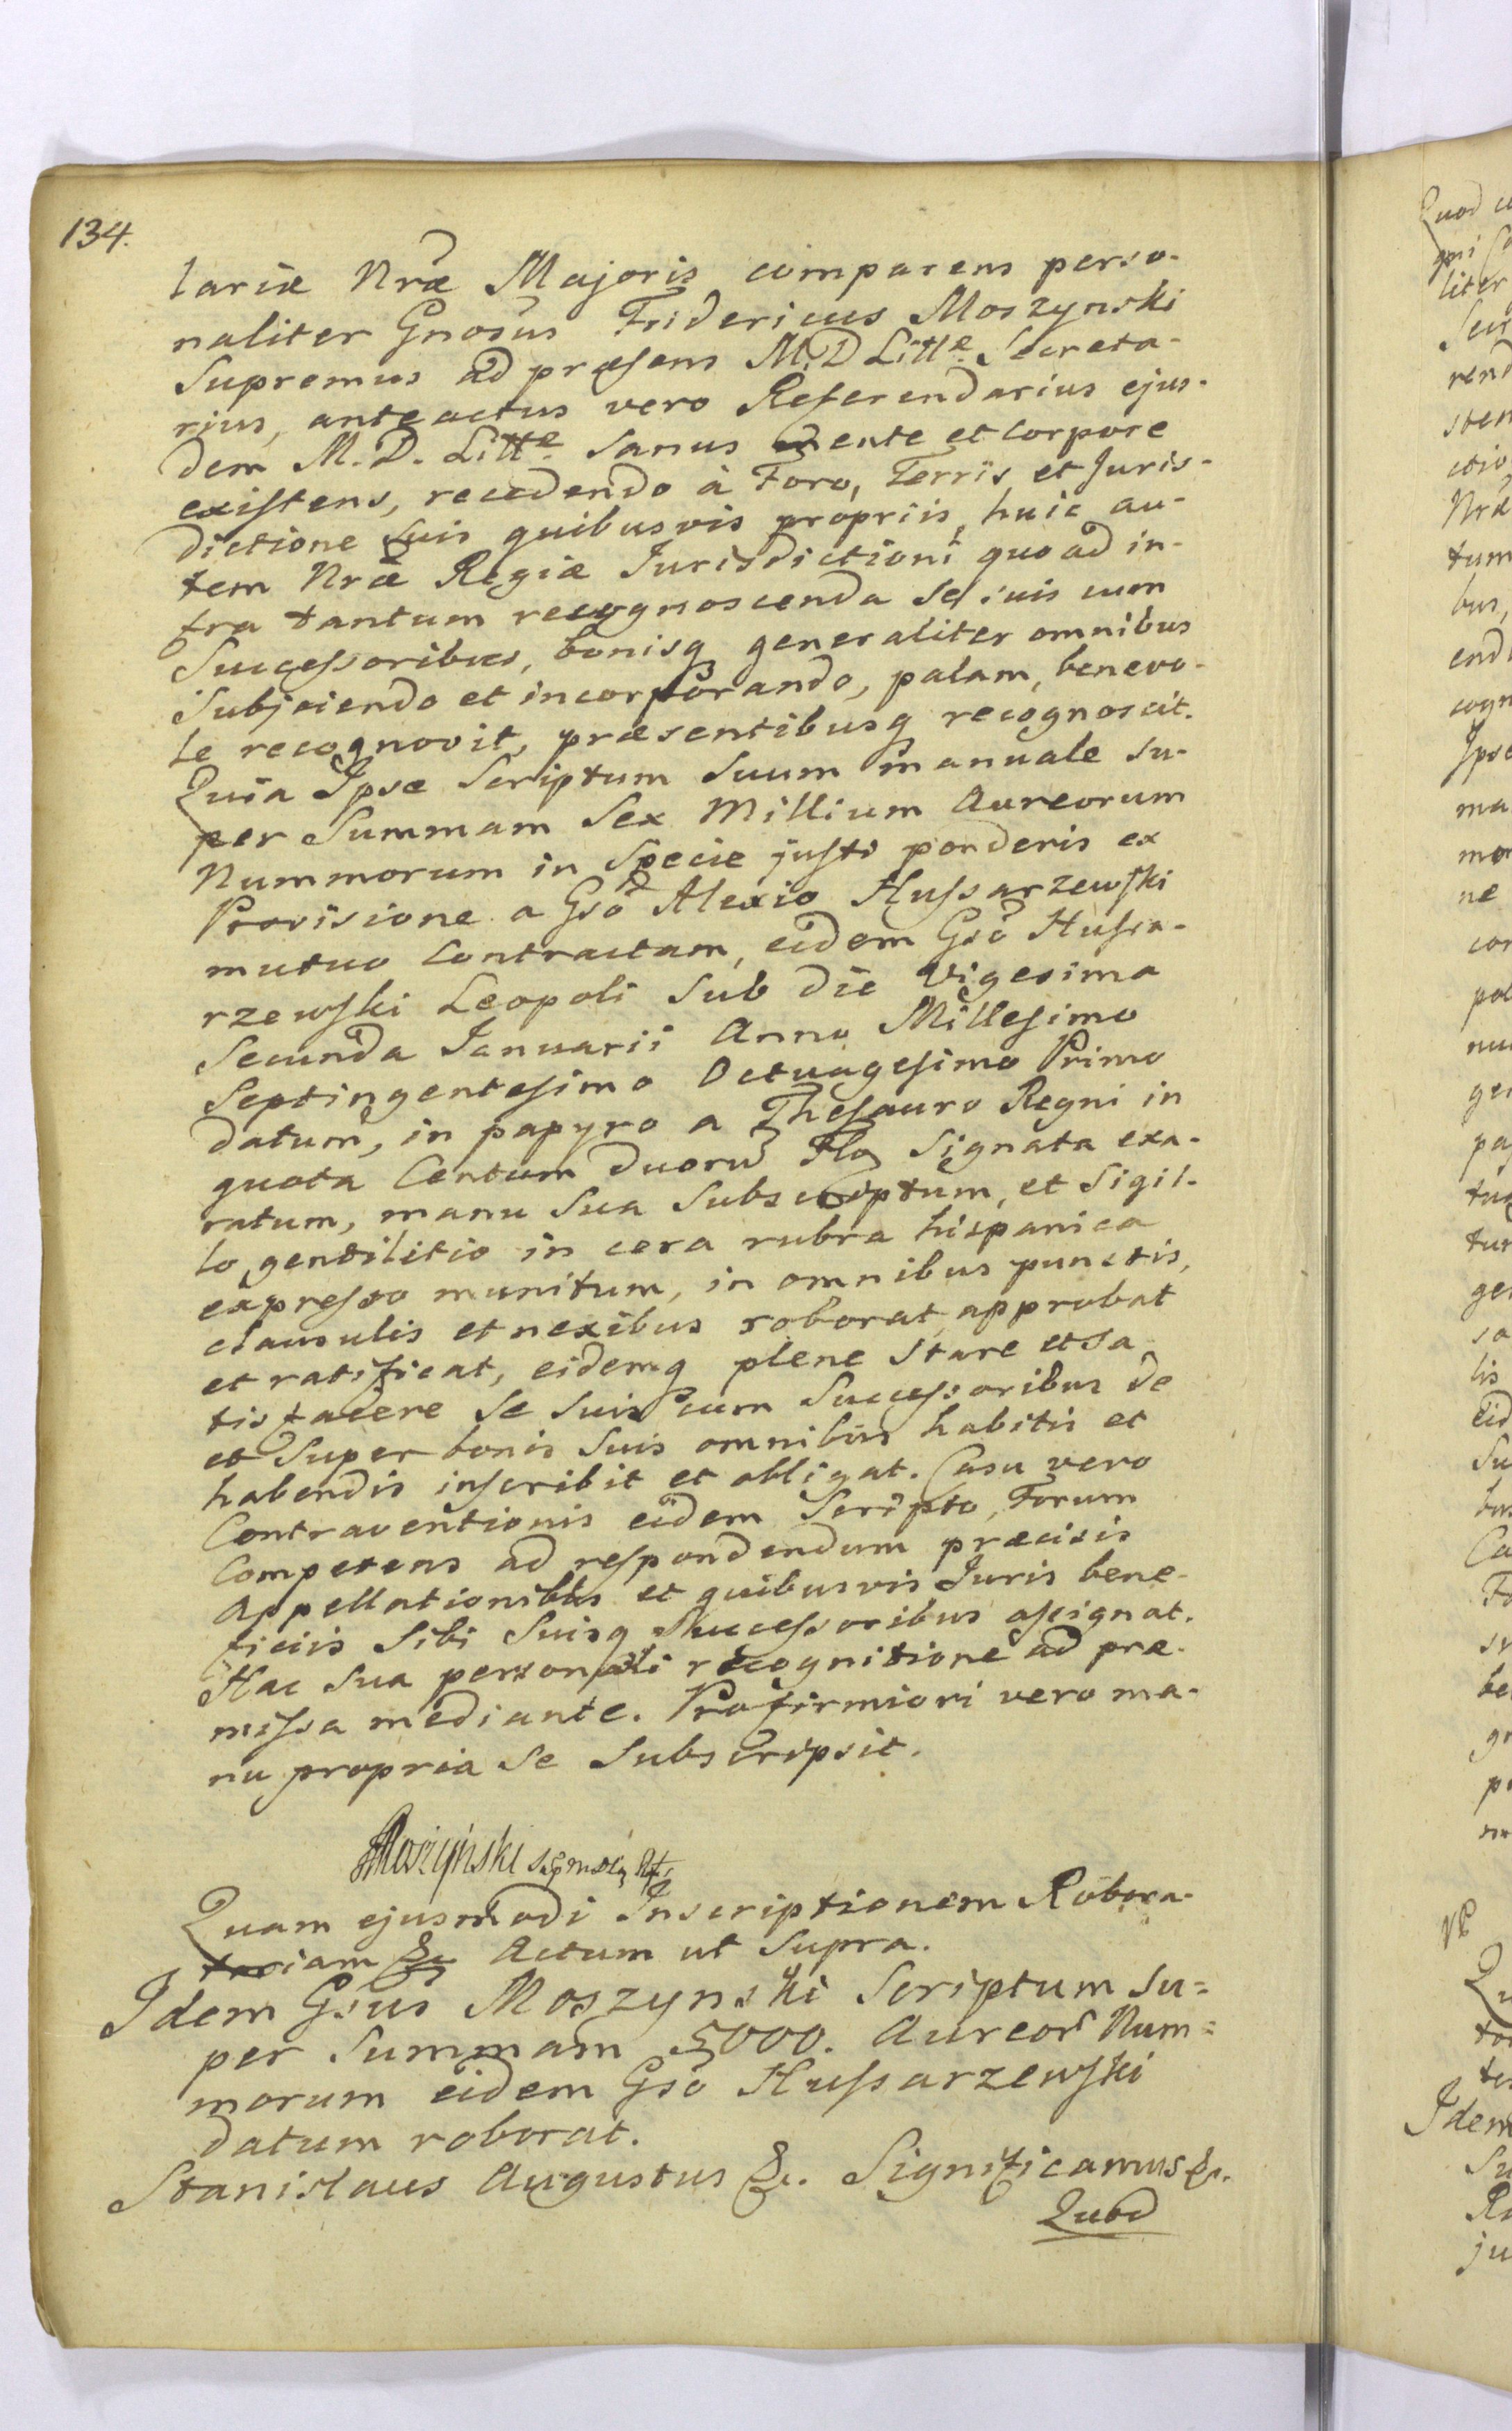 134.
lariæ Nræ Majoris comparens perso-
naliter Gnosus Fridericus Moszynski
Supremus ad præsens M. D. Litte. Secreta-
rius, anteactus vero Referendarius ejus-
dem M. D. Litte. Sanus mente et corpore
existens, recedendo à Foro, Terris, et Juris-
dictione suis quibusvis propriis, huic au-
tem Nræ Regiæ Jurisdictioni quo ad in-
fra tantum recognoscenda se suis cum
Successoribus, bonisq generaliter omnibus
Subjciendo et incorporando, palam, benevo-
le recognovit, præsentibusq recognoscit.
Quia Ipse Scriptum Suum manuale Su-
per Summam Sex Millium Aureorum
Nummorum in Specie justi ponderis ex
Provisione a Gsō Alexio Hussarzewski
mutuo Contractam, eidem Gsō Hussa-
rzewski Leopoli Sub die Vigesima
Secunda Januarii Anno Millesimo
Septingentesimo Octuagesimo Primo
datum, in papyro a Thesauro Regni in
quota Centum duorū Flo Signata exa-
ratum, manu Sua Subscriptum, et Sigil-
lo gentilitio in cera rubra hispanica
expresso munitum, in omnibus punctis,
clausulis et nexibus roborat, approbat
et ratificat, eidemq plene Stare et Sa-
tisfacere Se Suis cum Successoribus de
et Super bonis Suis omnibus habitis et
habendis inscribit et obligat. Casu vero
Contraventionis eidem Scripto, Forum
Competens ad respondendum præcisis
Appellationibus et quibusvis Juris bene-
ficiis Sibi Suisq Successoribus assignat.
Hac Sua personali recognitione ad præ-
missa mediante. Pro firmiori vero ma-
nu propria Se Subscripsit.
FMoszyński
Quam ejusmodi Inscriptionem Robora-
toriam &c Actum ut Supra.
Idem Gsus Moszynski Scriptum Su=
per Summam 5000. Aureor Num=
morum eidem Gsō Hussarzewski
datum roborat.
Stanislaus Augustus &c. Significamus &c.
Quod